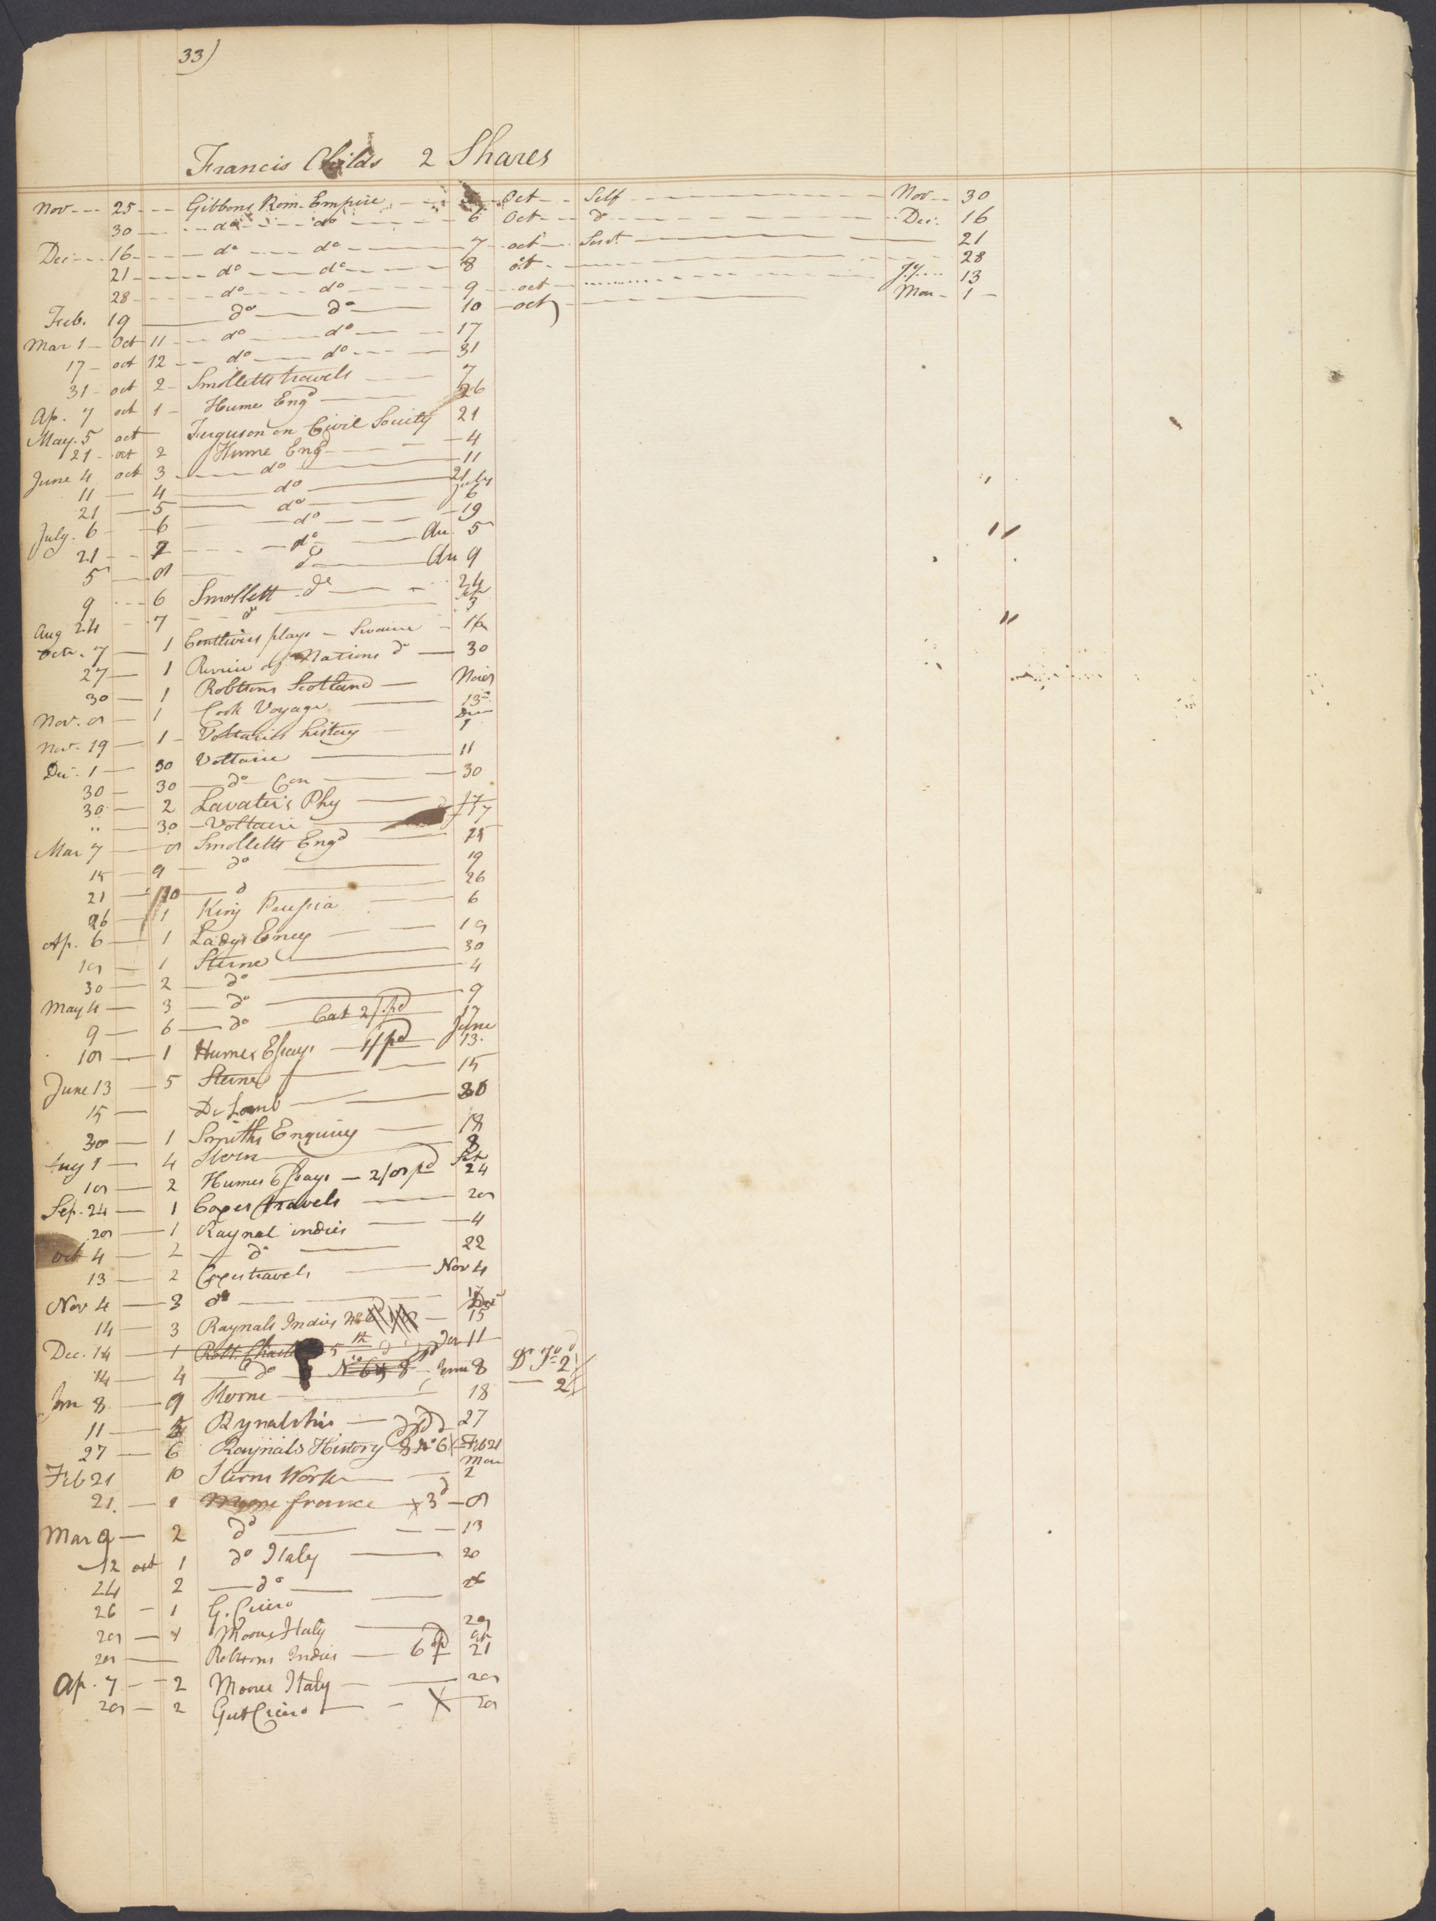 33)
Francis Childs 2 Shares
Nov 25 Gibbons Rom. Empire 5 Oct Self Nov 30
30 do do 6 Oct do Dec. 16
Dec 16 do do 7 oct Servt. 21
21 do do 8 oct 28
28 do do 9 oct Jy. 13
Feb. 19 do do 10 oct Mar 1
Mar 1 Oct 11 do do 17
17 oct 12 do do 31
31 oct 2 Smolletts travels 7
Ap. 7 oct 1 Hume Engd 26
May. 5 oct Ferguson on Civil Society 21
21 oct 2 Hume Eng 4
June 4 oct 3 do 11
11 4 do 21
21 5 do July 6
July. 6 6 do 19
21 7 do Au. 5
5 8 do Au 9
9 6 Smollett do 24
Aug 24 7 do 3
Octr. 7 1 Centlivies plays Swaine 16
27 1 Review of Nations do 30
30 1 Robtsons Scotland Nov 8
Nov. 8 1 Cook Voyage 13
Nov. 19 1 Voltaires history Dec 1
Dec. 1 30 Voltaire 11
30 30 do Con 30
30 2 Lavater's Phy
" 30 Voltaire 7
Mar 7 8 Smolletts Engd 15
15 9 do 19
21 10 d 26
26 1 King Prussia 6
Ap. 6 1 Ladys Ency 18
18 1 Sterne 30
30 2 do 4
May 4 3 do 9
9 6 do Cat 2/ pd 17
18 1 Humes Essays 1/ pd June 13.
June 13 5 Sterne 15
15 De Lomb 30
30 1 Smiths Enquiry 18
Aug 1 4 Stern 8
18 2 Humes Essays 2/8 pd 24
Sep. 24 1 Coxes travels 28
28 1 Raynal indies 4
oct 4 2 do 22
13 2 Coxes travels Nov 4
Nov 4 3 do
14 3 Raynals Indies 15
Dec. 14 1 Robt. 5 11
14 4 do No 6 8 8 2/
Jan 8 9 Sterne 18 2/
11 5 Rynalshis 27
27 6 Raynals History Feb 21
Feb 21 10 Sterns Works Mar 2
21. 1 Moore france 3d 8
Mar 9 2 do 13
12 oct 1 do Italy 20
24 2 do 26
26 1 G. Cicero
28 1 Moores Italy 28
28 Robtsons Indies 6 pd 21
Ap. 7 2 Moores Italy 28
28 2 Gut Cicero X 28